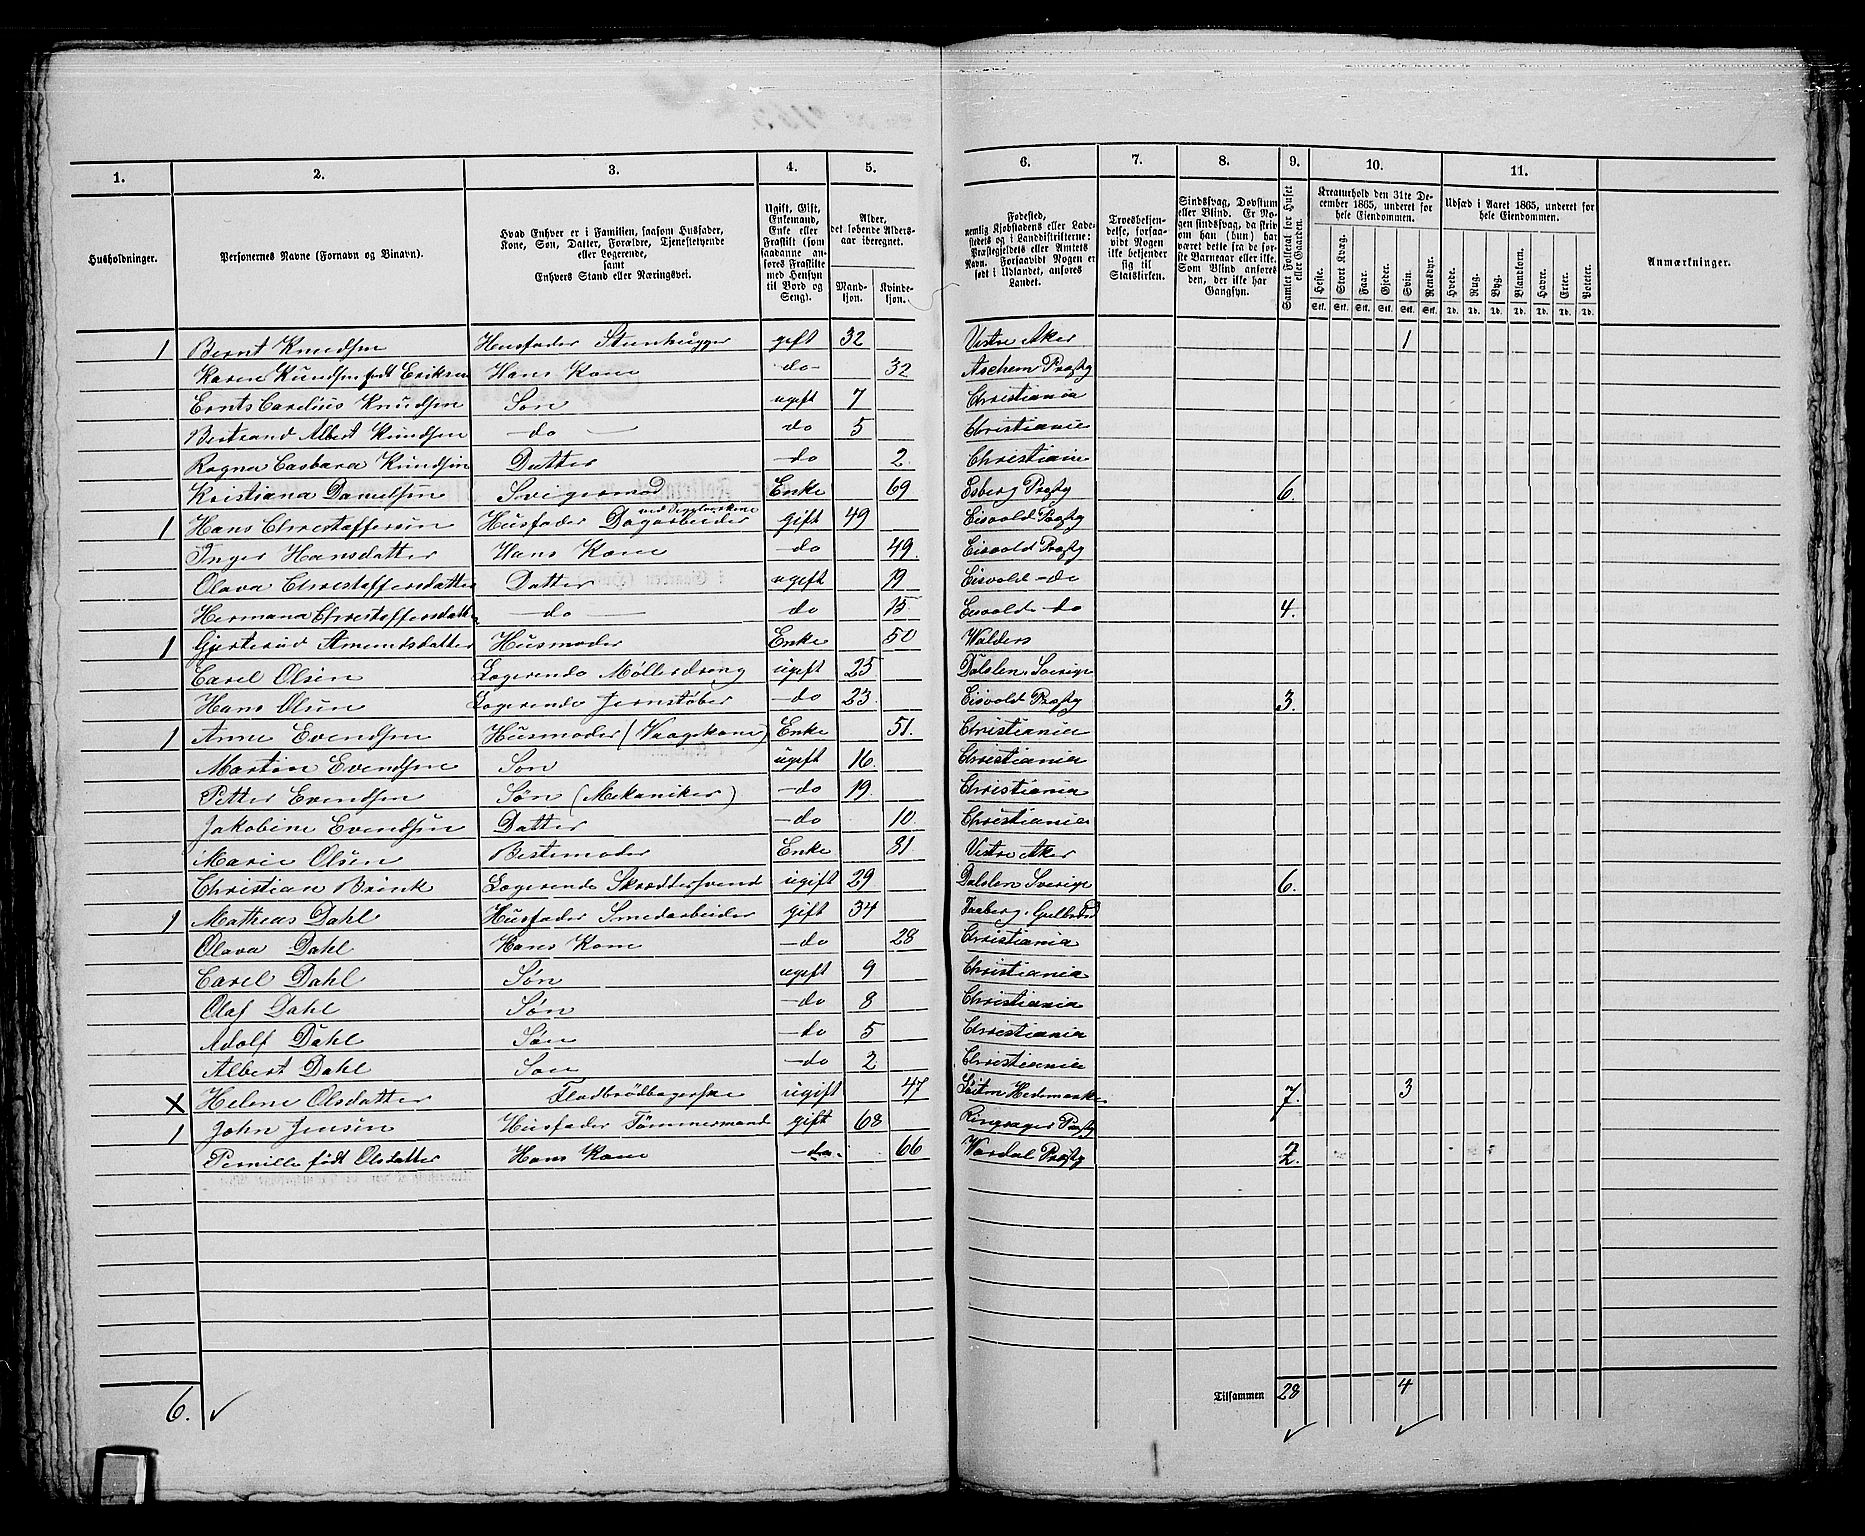 1. 2. 3. 4. 5. 6. 7. 8. 9. 10. 11.
Husholdninger.
Personernes Navne (Fornavn og Binavn).
Hvad Enhver er i Familien, saasom Husfader, Kone, Søn, Datter, Forældre, Tjenestetyende eller Logerende, samt Enhvers Stand eller Næringsvei.
Ugift, Gift, Enkemand, Enke eller Fraskilt (som saadanne anføres Fraskilte med Hensyn til Bord og Seng).
Alder, det løbende Aldersaar iberegnet.
Mandkjøn. Kvindekjøn.
Fødested, nemlig Kjøbstadens eller Ladestedets og i Landdistrikterne: Præstegjeldets eller Amtets Navn. Forsaavidt Nogen er født i Udlandet, anføres Landet.
Troesbekjendelse, forsaavidt Nogen ikke bekjender sig til Statskirken.
Sindssvag, Døvstum eller Blind. Er Nogen sindssvag, da skrives om han (hun) har været dette fra de første Barneaar eller ikke. Som Blind anføres den, der ikke har Gangsyn.
Samlet Folketal for Huset eller Gaarden.
Kreaturhold den 31te December 1865, underet for hele Eiendommen.
Heste. Stort Kvæg. Faar. Gjeder. Svin. Rensdyr.
Stk. Stk. Stk. Stk. Stk. Stk.
Udsæd i Aaret 1865, underet for hele Eiendommen.
Hvede. Rug. Byg. Blandkorn. Havre. Erter. Poteter.
Td. Td. Td. Td. Td. Td. Td.
Anmærkninger.
1 Bernt Knudsen Husfader Stenhugger gift 32 Vestre Aker 1
Karen Kundsen født Eriksen Hans Kone do 32 Aschem Præstg
Ernts Carelius Knudsen Søn ugift 7 Christiania
Bertrand Albert Kundsen do do 5 Christiania
Ragna Basbara Kundsen Datter do 2 Christiania
Kristiana Danielsen Svigermod Enke 69 Esberg Præstg 6.
1 Hans Chrestoffersen Husfader Dagarbeider gift 49 Eisvold Præstg
Inger Hansdatter Hans Kone do 49. Eisvold Præstg
Olava Chrestoffersdatter Datter ugift 19 Eisvold do
Hermana Chrestoffersdatter do do 15 Eisvold do 4.
1 Gjertrud Amundsdatter Husmoder Enke 50 Walders
Carel Olsen Logerende Møllerdreng ugift 25 Dalslen Sverige
Hans Olsen Logerende Jernstøber do 23 Eisvold Præstg 3.
1 Anne Evendsen Husmoder (Vaagekone) Enke 51. Christiania
Martin Evendsen Søn ugift 16. Christiania
Petter Evendsen Søn (Mekaniker) do 19. Christiania
Jakobine Evendsen Datter do 10. Christiania
Marie Olsen Bestemoder Enke 81 Vestre Aker
Christian Brink Logerende Skrædersvend ugift 29 Dalslen Sverige 6.
1 Mathias Dahl Husfader Smedarbeider gift 34 Faaberg
Olava Dahl Hans Kone do 28 Christiania
Carel Dahl Søn ugift 9 Christiania
Olaf Dahl Søn do 8 Christiania
Adolf Dahl Søn do 5 Christiania
Albert Dahl Søn do 2 Christiania
x Helene Olsdatter Fladbrödbagerske ugift 47 Løiten Hedemarke 7. 3
1 John Jensen Husfader Tömmermand gift 68 Ringsager Præstg
Pernille født Olsdatter Hans Kone do 66 Wardal Præstg 2.
6. Tilsammen 28 4